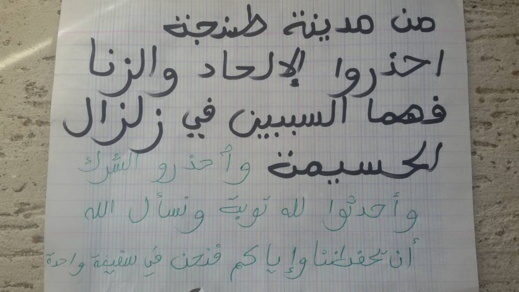 من مدينة طنجة
احذروا الإلحاد والزنا
فهما السببين في زلزال
لحسيمة وأحذرو الشرك
وأحدثوا لله توبة ونسأل الله
أن يحفظننا وإياكم فنحن في سفينة واحدة